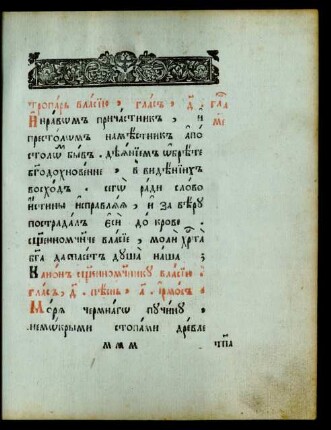 тропа́рь вла́сїю, гла́съ, д҃. гла́
И нра́вомъ прича́стникъ, и҆ мі́е
престо́ломъ намѣ́стникъ а҆по́
столѡмъ бы́въ. дѣѧ́нїемъ ѡ҆брѣ́те
бг҃одохнове́нне, в видѣ́нїихъ
восхо́дъ. сегѡ̀ ради сло́во
и҆́стины и҆справлѧ́ѧ, и҆ за вѣ́ру
пострада́лъ є҆сѝ до крове.
сщ҃енномч҃ниче вла́сїе, молѝ хрⷭ҇та̀
бг҃а да спасе́тъ дꙋ́ша наша
Кано́нъ сщ҃енномч҃нику вла́сїю.
гла́съ, д҃. пѣ́снь, а҃. і҆рмо́съ.
Мо́рѧ чермна́гѡ пучи́ну,
немо́крыми стопа́ми дре́вле
м м м